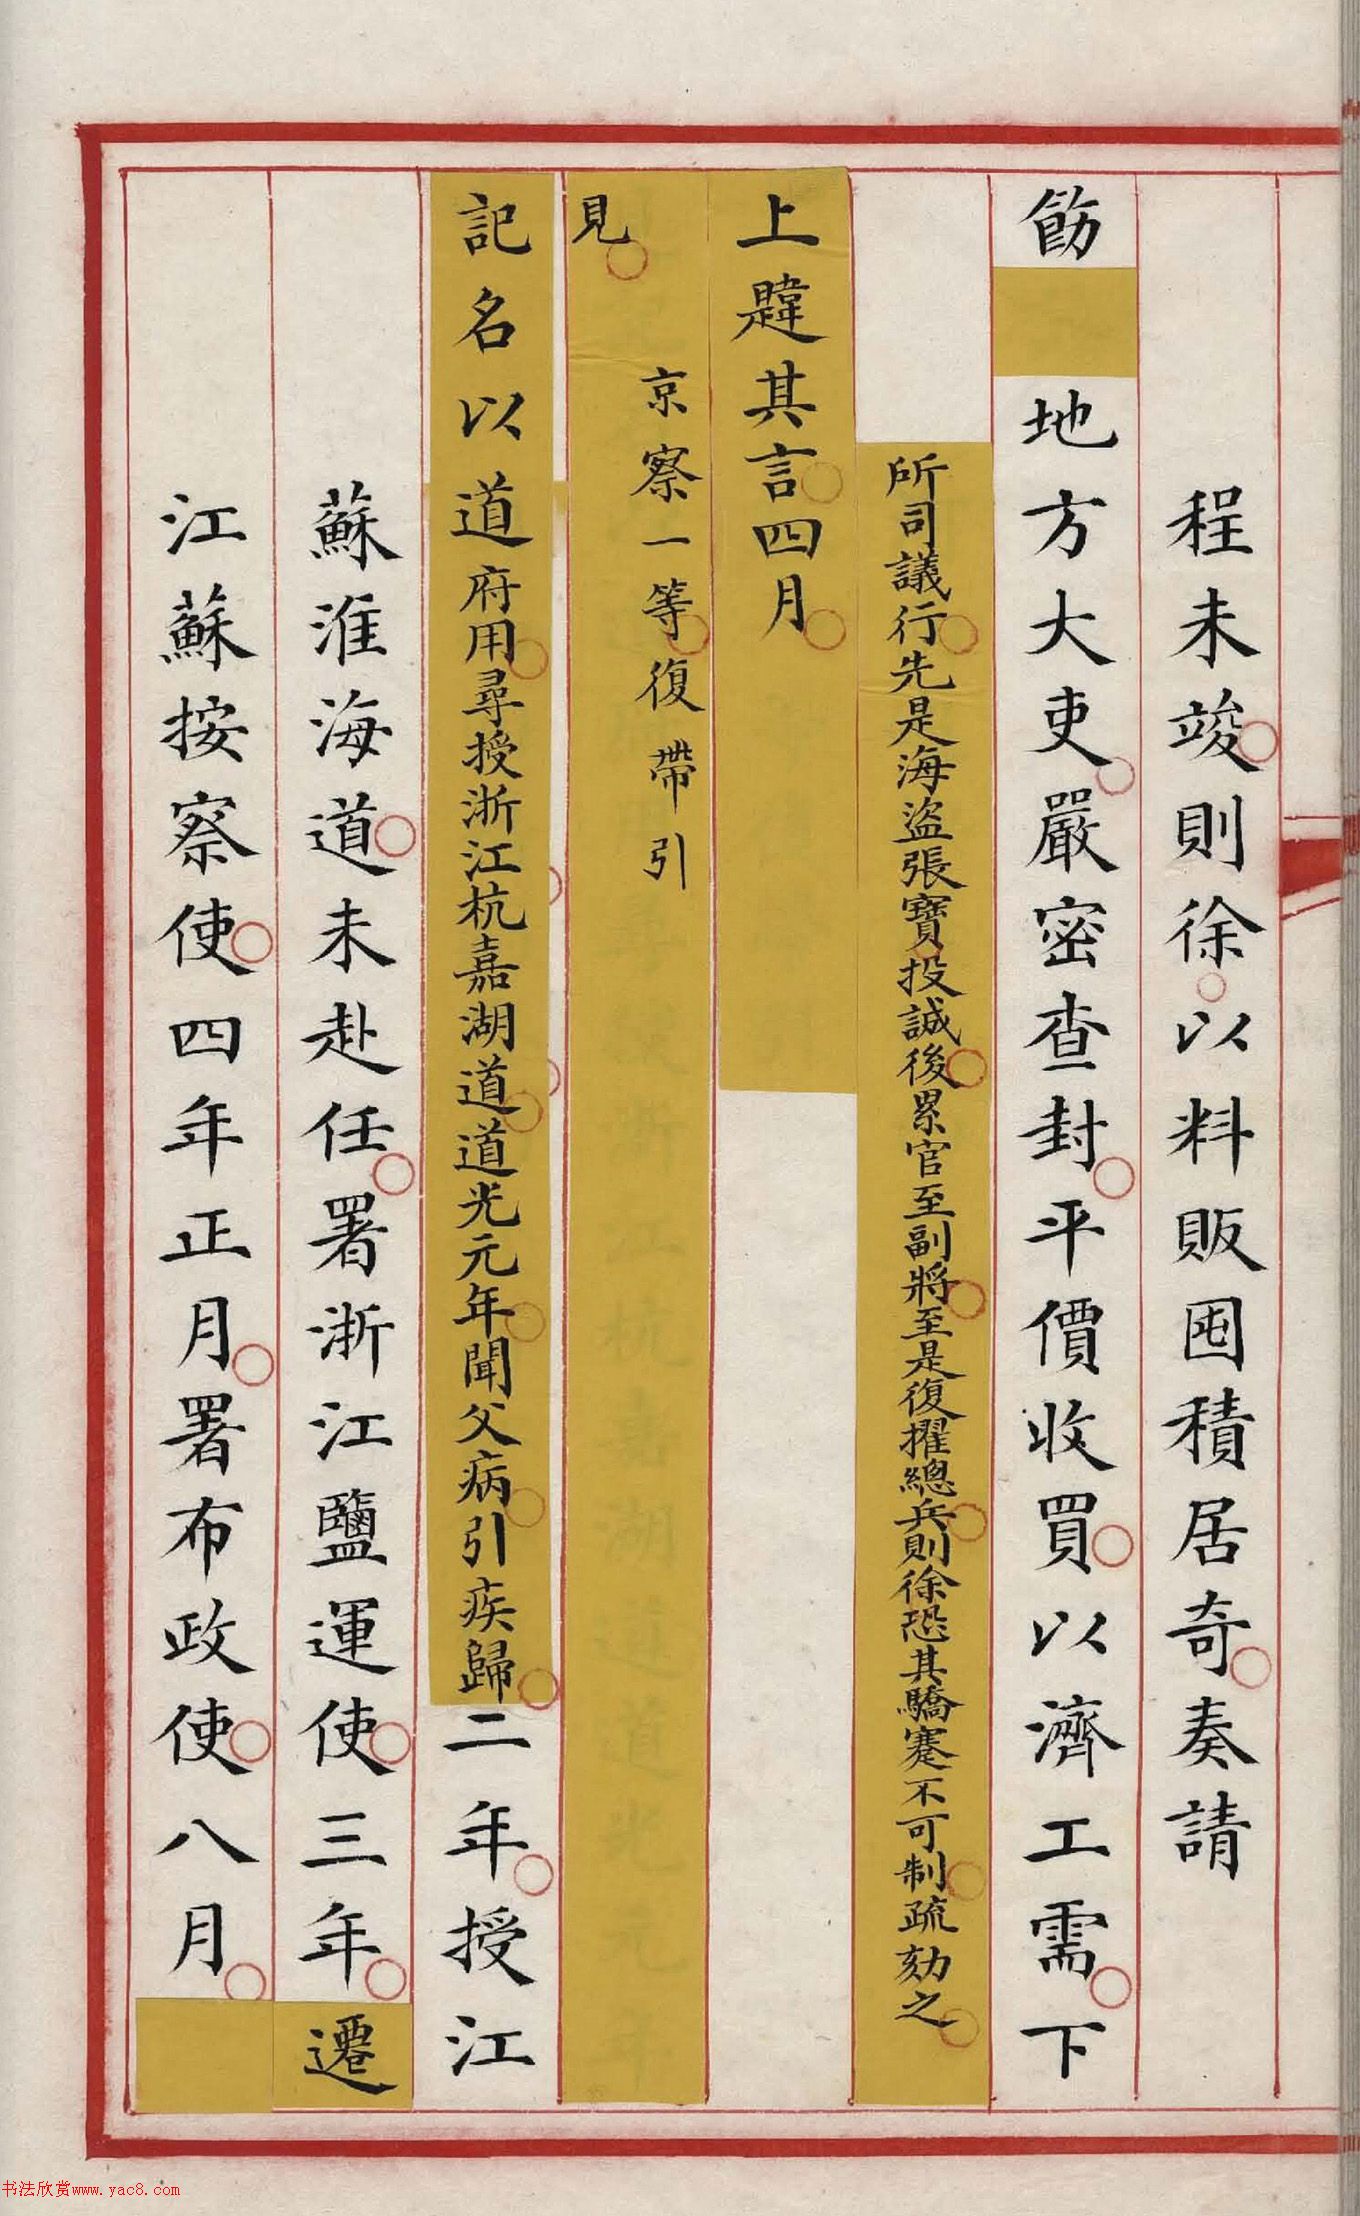 程未竣則徐以料販囤積居奇奏請
飭地方大吏嚴密查封平價收買以濟工需下
所司議行先是海盜張寶投誠後累官至副將至是復擢總兵則徐恐其驕蹇不可制疏劾之
上韙其言四月
京察一等復帶引
見
記名以道府用尋授浙江杭嘉湖道道光元年聞父病引疾歸二年授江
蘇淮海道未赴任署浙江鹽運使三年遷
江蘇按察使四年正月署布政使八月
书法欣赏www.yac8.com